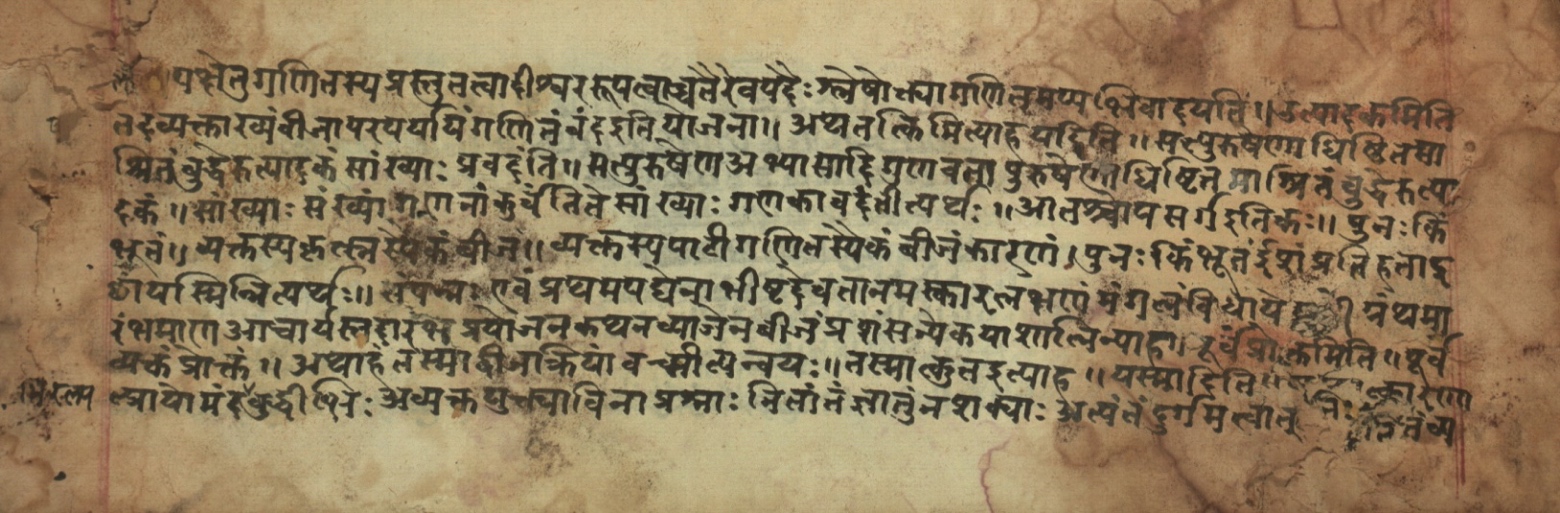 पक्षे तु गणितस्य प्रस्तुतत्वादीश्वररूपत्वाच्च तैरेव पदैः श्लेषोक्त्या गणितमप्यभिवादयति ॥ उत्पादकमिति
तदव्यक्ताख्यं बीजापरपर्यायं गणितं वंदे इति योजना ॥ अथ तत्किमित्याह यदिति ॥ सत्पुरुषेणाधिष्ठितमा
श्रितं बुद्धेरुत्पादकं सांख्याः प्रवदंति ॥ सत्पुरुषेण अभ्यासादिगुणवता पुरुषेणाधिष्ठितमाश्रितं बुद्धेरुत्पा
दकं ॥ सांख्याः संख्यां गणनां कुर्वंति ते सांख्याः गणका वदंतीत्यर्थः ॥ आतश्चोपसर्ग इति कः ॥ पुनः किं
भूतं ॥ व्यक्तस्य कृत्स्नस्यैकं बीजं ॥ व्यक्तस्य पाटीगणितस्यैकं बीजं कारणं । पुनः किंभूतं ईशं प्रति
यस्मिन्नित्यर्थः ॥ एवं प्रथमपद्येनाभीष्टदेवतानमस्कारलक्षणं मंगलं विधाय ग्रंथमा
रंभमाण आचार्यस्तदारंभप्रयोजनकथनव्याजेन बीजं प्रशंसन्येकया शालिन्याह ॥ पूर्वं प्रोक्तमिति ॥ पूर्वं
व्यक्तं प्रोक्तं ॥ अथाहं तस्माद्बीजक्रियां वच्मीत्यन्वयः ॥ तस्मात्कुत इत्याह ॥ यस्मादिति ॥ कारण
मंदबुद्धीभिः अव्यक्तयुक्त्या विना प्रश्नाः नितांतं ज्ञातुं न शक्याः अत्यंतं दुर्गमत्वात्